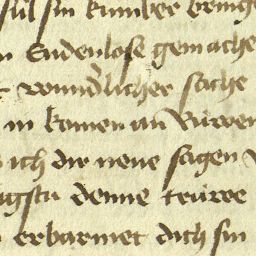 sul sin kumber bring
Endenlose gemache
wundlicher sache
in komen an Ruwen
ich dir neue sagen
denne truwe
erbarmet dich sin